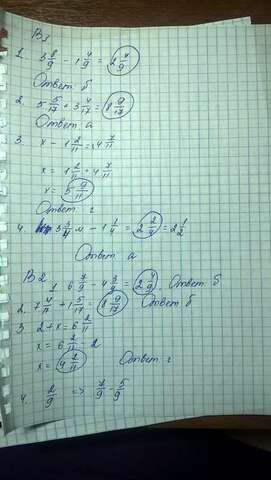 В1
1. 3 8/9 - 1 4/9 = 2 4/9
Ответ б
2. 5 5/17 + 3 4/17 = 8 9/17
Ответ а
3. x - 1 2/11 = 4 7/11
x = 1 2/11 + 4 7/11
x = 5 9/11
Ответ г
4. 3 3/4 м - 1 1/4 = 2 2/4 = 2 1/2
Ответ а
В2
1. 6 7/9 - 4 3/9 = 2 4/9. Ответ: б
2. 7 4/17 + 1 5/17 = 8 9/17 Ответ б
3. 2 + x = 6 2/11
x = 6 2/11 - 2
x = 4 2/11 Ответ г
4. 2/9 => 7/9 - 5/9